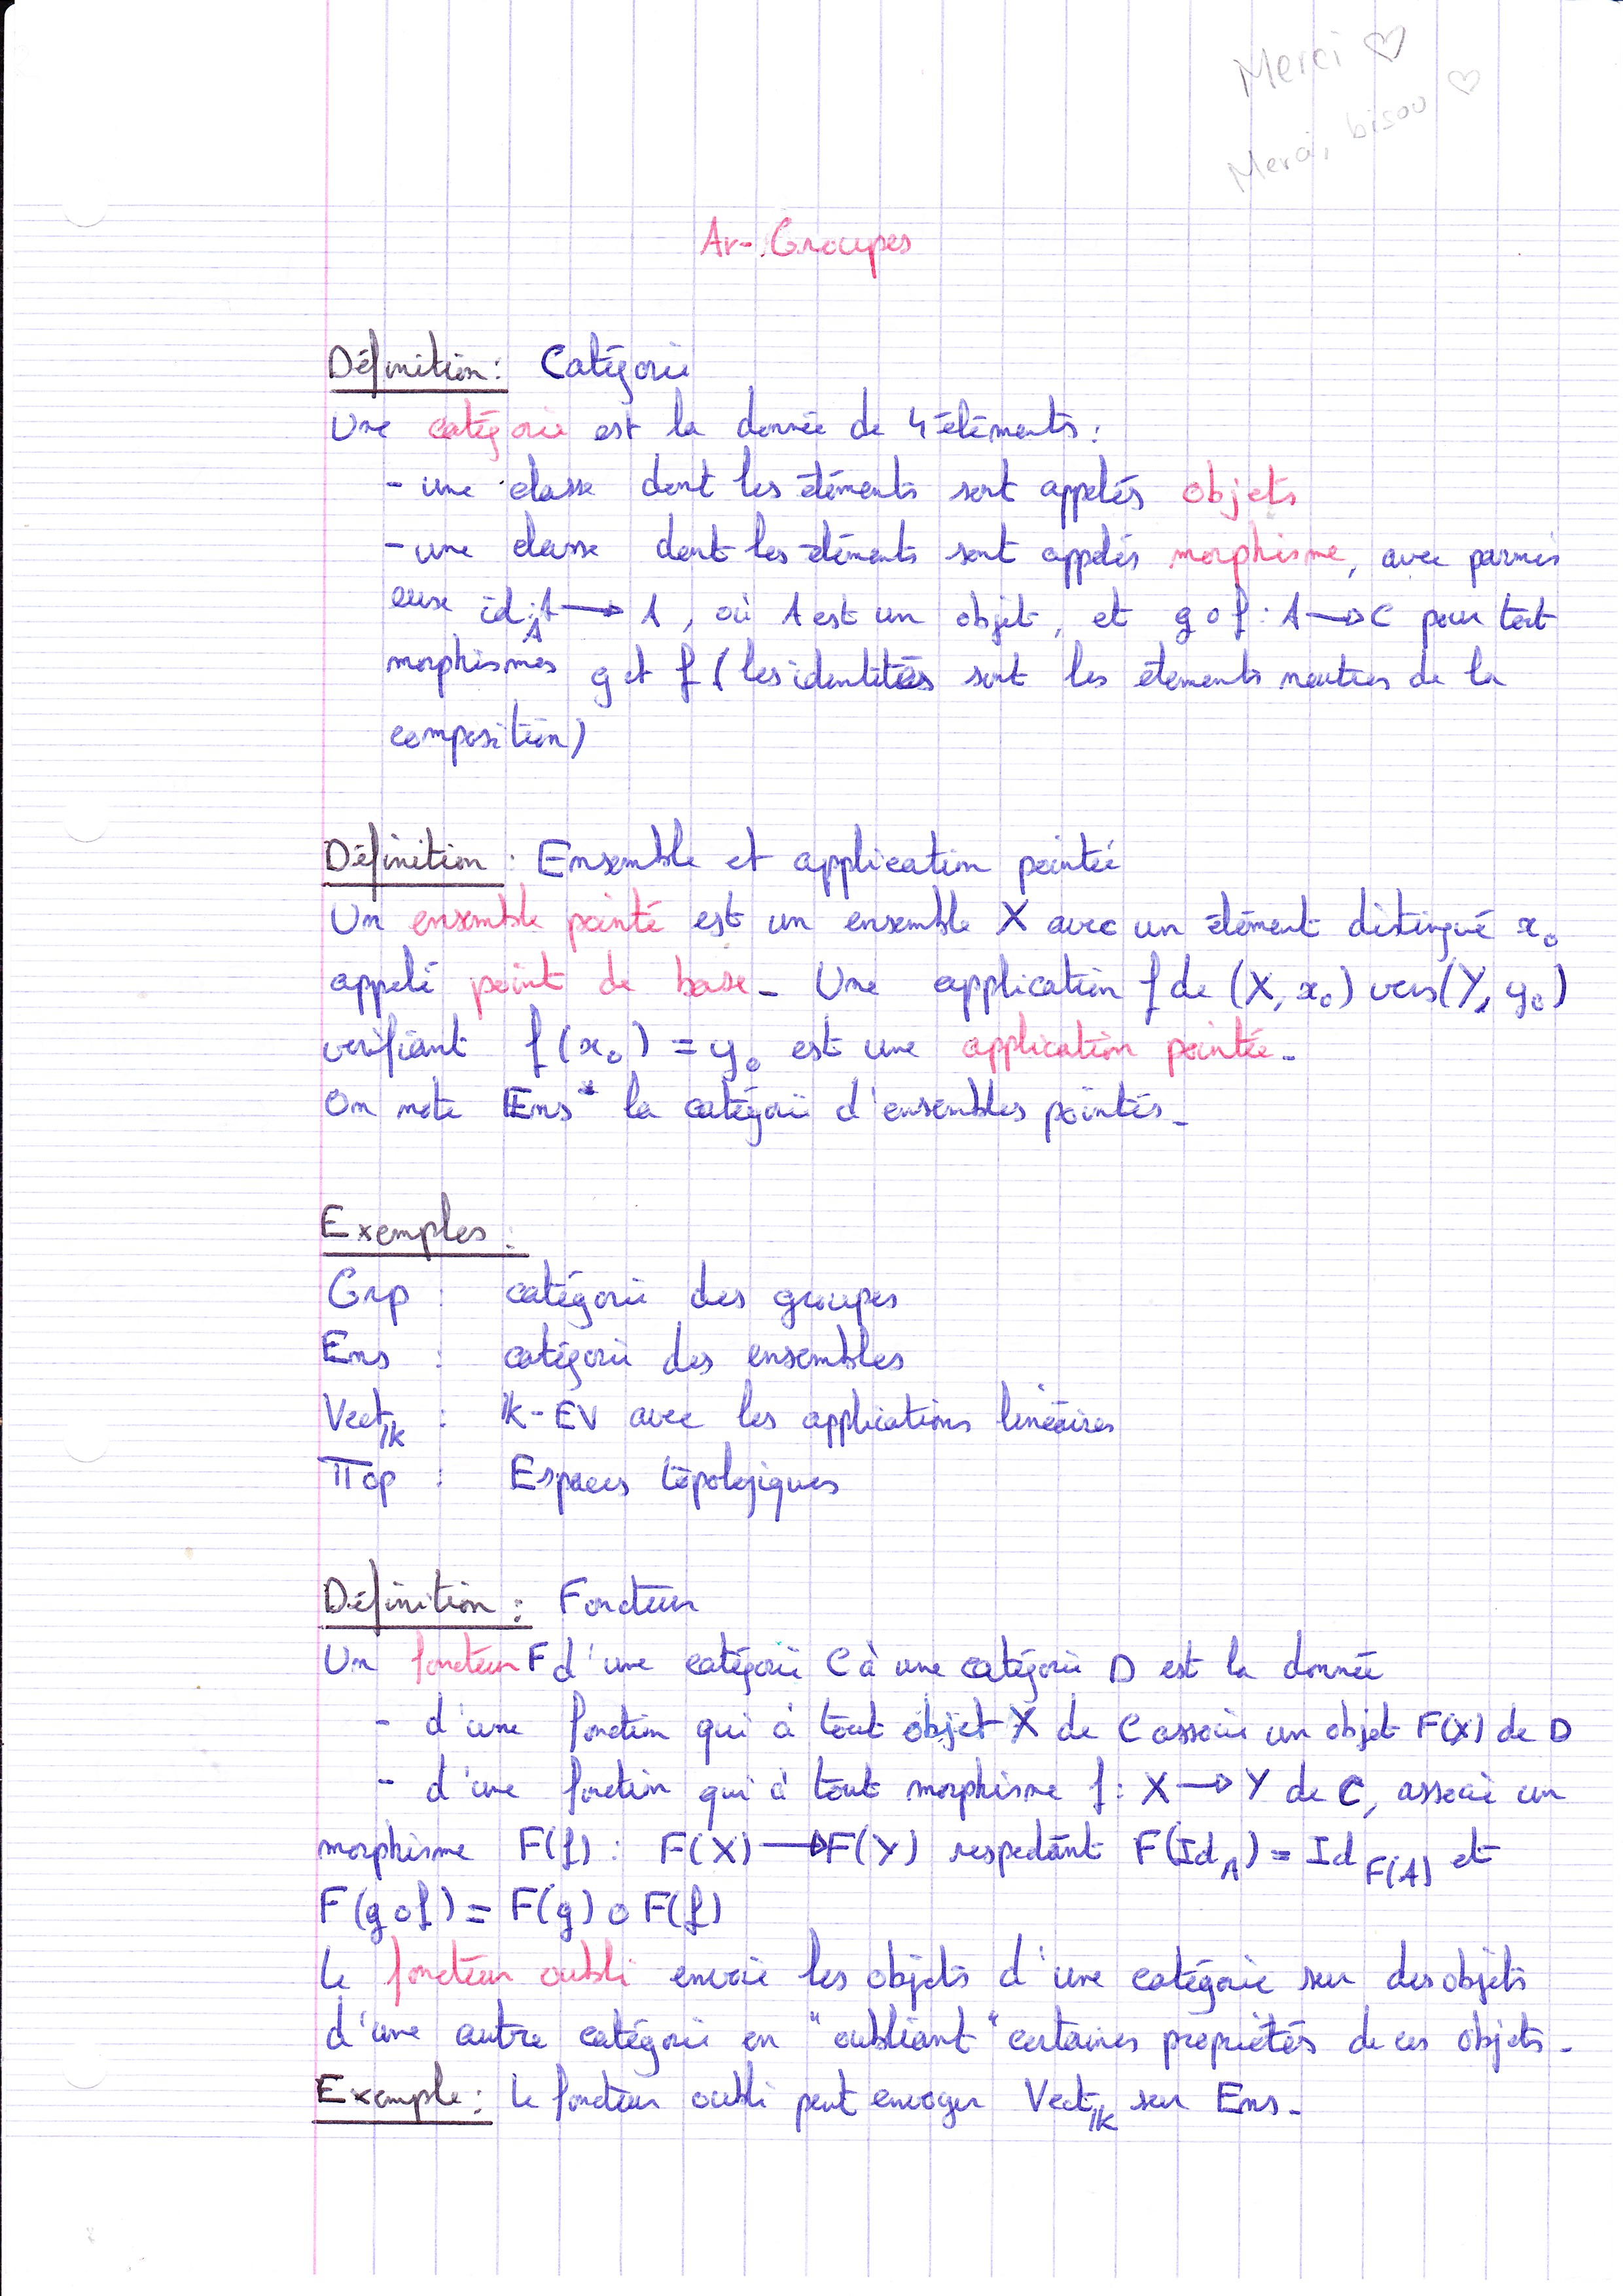 Merci ♡
Merci, bisou ♡
Ar-Groupes
Définition : Catégorie
Une catégorie est la donnée de 4 éléments :
- une classe dont les éléments sont appelés objets
- une classe dont les éléments sont appelés morphisme, avec parmis
eux id_A : A → A, où A est un objet, et g o f : A → C pour tout
morphismes g et f (les identités sont les éléments neutres de la
composition)
Définition : Ensemble et application pointée
Un ensemble pointé est un ensemble X avec un élément distingué x₀
appelé point de base. Une application f de (X, x₀) vers (Y, y₀)
vérifiant f(x₀) = y₀ est une application pointée.
On note Ens* la catégorie d'ensembles pointés.
Exemples :
Grp : catégorie des groupes
Ens : catégorie des ensembles
Vect_𝕜 : 𝕜-EV avec les applications linéaires
Top : Espaces topologiques
Définition : Foncteur
Un foncteur F d'une catégorie C à une catégorie D est la donnée
- d'une fonction qui à tout objet X de C associe un objet F(X) de D
- d'une fonction qui à tout morphisme f : X → Y de C, associe un
morphisme F(f) : F(X) → F(Y) respectant F(Id_A) = Id_F(A) et
F(g o f) = F(g) o F(f)
Le foncteur oubli envoie les objets d'une catégorie sur des objets
d'une autre catégorie en "oubliant" certaines propriétés de ces objets.
Exemple : Le foncteur oubli peut envoyer Vect_𝕜 sur Ens.